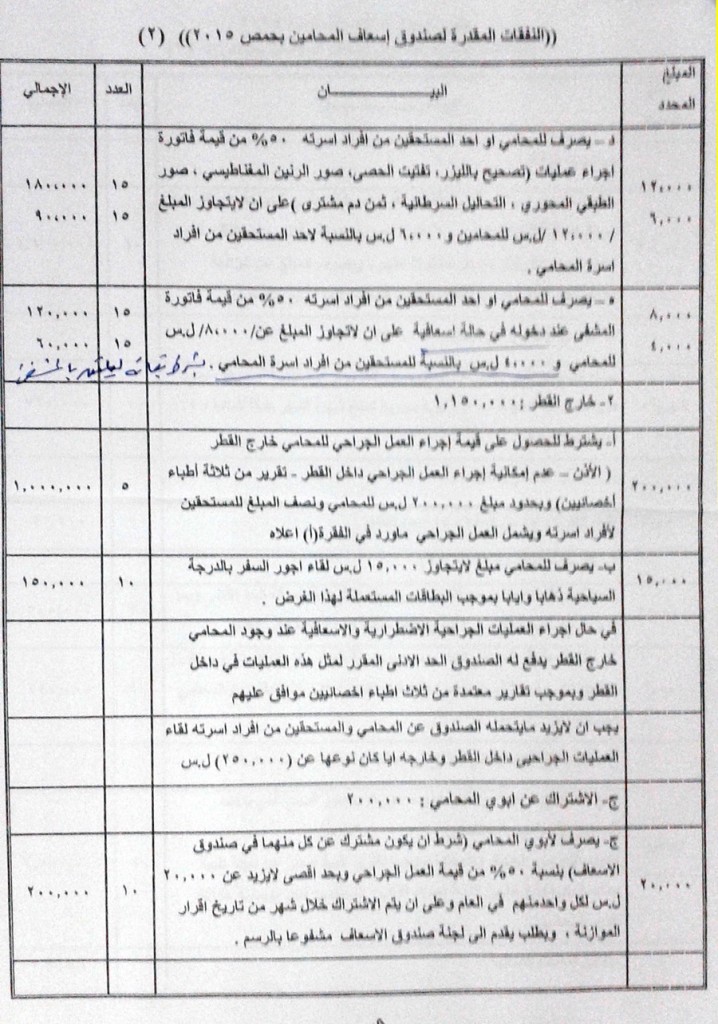 ((النفقات المقدرة لصندوق إسعاف المحامين بحمص ٢٠١٥)) (٢)
المبلغ المحدد البيـــــــــان العدد الإجمالي
د – يصرف للمحامي او احد المستحقين من افراد اسرته ٥٠% من قيمة فاتورة
١٢،٠٠٠ اجراء عمليات (تصحيح بالليزر، تفتيت الحصى، صور الرنين المغناطيسي ، صور ١٥ ١٨٠،٠٠٠
٦،٠٠٠ الطبقي المحوري ، التحاليل السرطانية ، ثمن دم مشترى )على ان لايتجاوز المبلغ ١٥ ٩٠،٠٠٠
/ ١٢،٠٠٠ /ل.س للمحامين و ٦،٠٠٠ ل.س بالنسبة لاحد المستحقين من افراد
اسرة المحامي .
٨،٠٠٠ ه – يصرف للمحامي او احد المستحقين من افراد اسرته ٥٠% من قيمة فاتورة ١٥ ١٢٠،٠٠٠
٤،٠٠٠ المشفى عند دخوله في حالة اسعافية على ان لاتجاوز المبلغ عن/٨،٠٠٠/ ل.س ١٥ ٦٠،٠٠٠
للمحامي و ٤،٠٠٠ ل.س بالنسبة للمستحقين من افراد اسرة المحامي . بشرط
٢- خارج القطر : ١،١٥٠،٠٠٠
أ- يشترط للحصول على قيمة إجراء العمل الجراحي للمحامي خارج القطر
٢٠٠،٠٠٠ ( الأذن – عدم إمكانية إجراء العمل الجراحي داخل القطر - تقرير من ثلاثة اطباء ٥ ١،٠٠٠،٠٠٠
اخصائيين) وبحدود مبلغ ٢٠٠،٠٠٠ ل.س للمحامي ونصف المبلغ للمستحقين
لأفراد اسرته ويشمل العمل الجراحي ماورد في الفقرة(أ) اعلاه
١٥،٠٠٠ ب- يصرف للمحامي مبلغ لايتجاوز ١٥،٠٠٠ ل.س لقاء اجور السفر بالدرجة ١٠ ١٥٠،٠٠٠
السياحية ذهابا وايابا بموجب البطاقات المستعملة لهذا الغرض .
في حال اجراء العمليات الجراحية الاضطرارية والاسعافية عند وجود المحامي
خارج القطر يدفع له الصندوق الحد الادنى المقرر لمثل هذه العمليات في داخل
القطر وبموجب تقارير معتمدة من ثلاث اطباء اخصائيين موافق عليهم
يجب ان لايزيد مايتحمله الصندوق عن المحامي والمستحقين من افراد اسرته لقاء
العمليات الجراحيى داخل القطر وخارجه ايا كان نوعها عن (٢٥٠،٠٠٠) ل.س
ج- الاشتراك عن ابوي المحامي : ٢٠٠،٠٠٠
ج- يصرف لأبوي المحامي (شرط ان يكون مشترك عن كل منهما في صندوق
٢٠،٠٠٠ الاسعاف) بنسبة ٥٠% من قيمة العمل الجراحي وبحد اقصى لايزيد عن ٢٠،٠٠٠ ١٠ ٢٠٠،٠٠٠
ل.س لكل واحدمنهم في العام وعلى ان يتم الاشتراك خلال شهر من تاريخ اقرار
الموازنة ، وبطلب يقدم الى لجنة صندوق الاسعاف مشفوعا بالرسم .